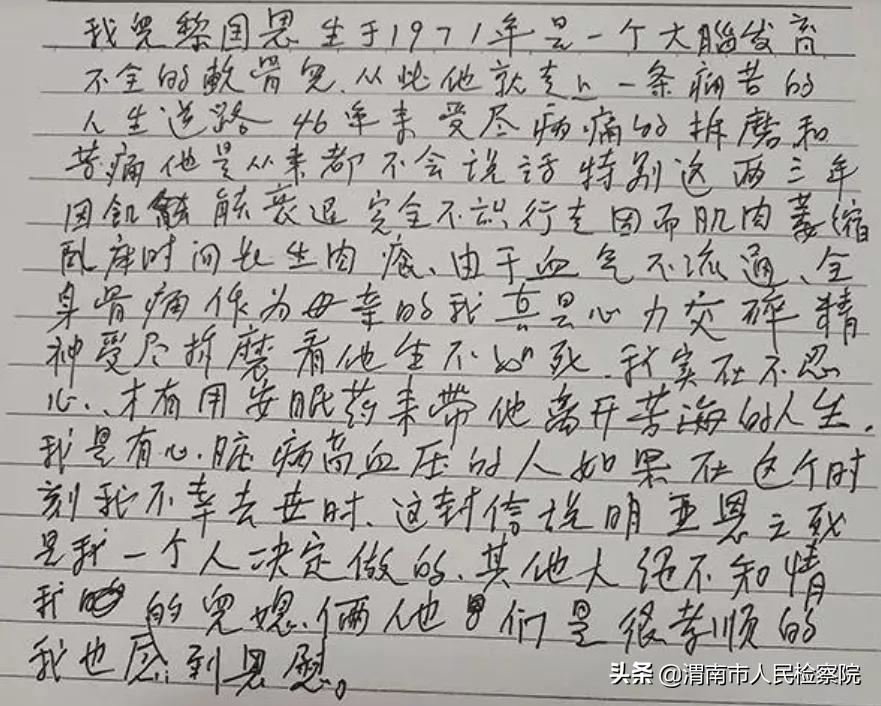 我兒黎国恩生于1971年是一个大腦发育
不全的軟骨兒.从此他就走上一条痛苦的
人生道路46年来受尽病痛的折磨和
苦痛他是从来都不会说话特别这两三年
因飢能衰退完全不识行走因而肌肉萎缩
臥床时间长生肉瘡、由于血气不流通、全
身骨痛作为母亲的我真是心力交碎精
神受尽折磨看他生不如死.我实在不忍
心、才有用安眠药来带他离开苦海的人生.
我是有心脏病高血压的人如果在这个时
刻我不幸去世时、这封信说明亚恩之死
是我一个人决定做的、其他人绝不知情
我的兒媳俩人他们是很孝顺的
我也感到恩慰。
头条 @渭南市人民检察院